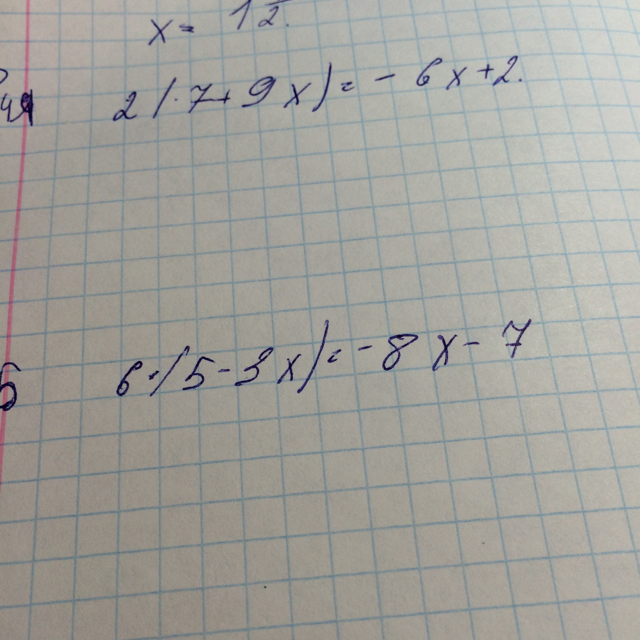 x = 1 1/2.
2(·7+9x) = -6x+2.
6·(5-3x) = -8x-7